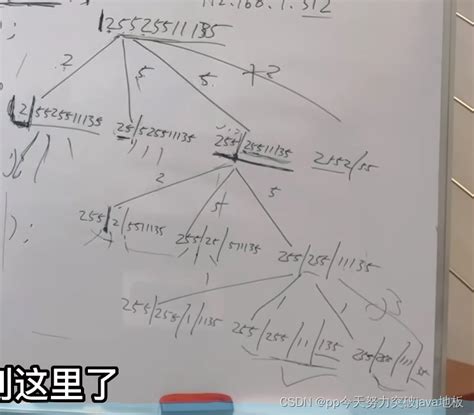 192.168.1.312
25525511135
2 5 5 73
2/5525511135
25/525511135
255/25511135
2552/55
2 5 5
255/2/5511135
255/25/511135
255/255/11135
1 1 1 3
255/255/1/1135
255/255/11/135
255/255/111/35
到这里了
CSDN @pp今天努力突破java地板